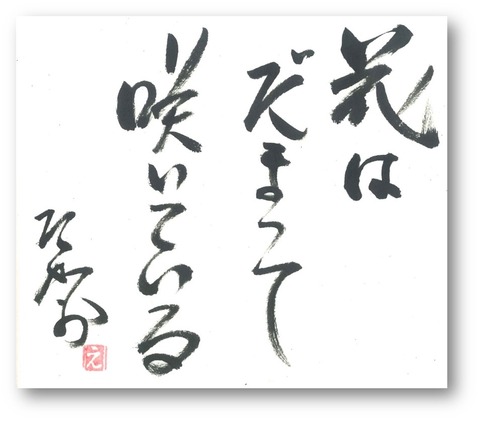 花は
だまって
咲いている
え